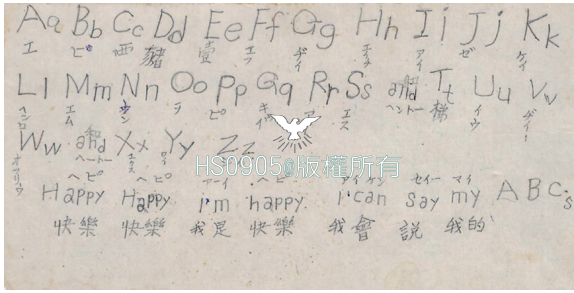 Aa Bb Cc Dd Ee Ff Gg Hh Ii Jj Kk
エ ビ 西 豬 壹 エフ アイ ゼ ケイ
Ll Mm Nn Oo Pp Gq Rr Ss and Tt Uu Vv
エム ウン ヲ ピ ア エス 和 ヘントー 梯 イウ
Ww and Xx Yy Zz
和 ヘートー エクス
HS0905@版權所有
ヘピ ヘピ アーイ ヘピ アイ ケン セイー マイ
Happy Happy I'm happy I can say my A B C's
快樂 快樂 我是 快樂 我會 説 我的